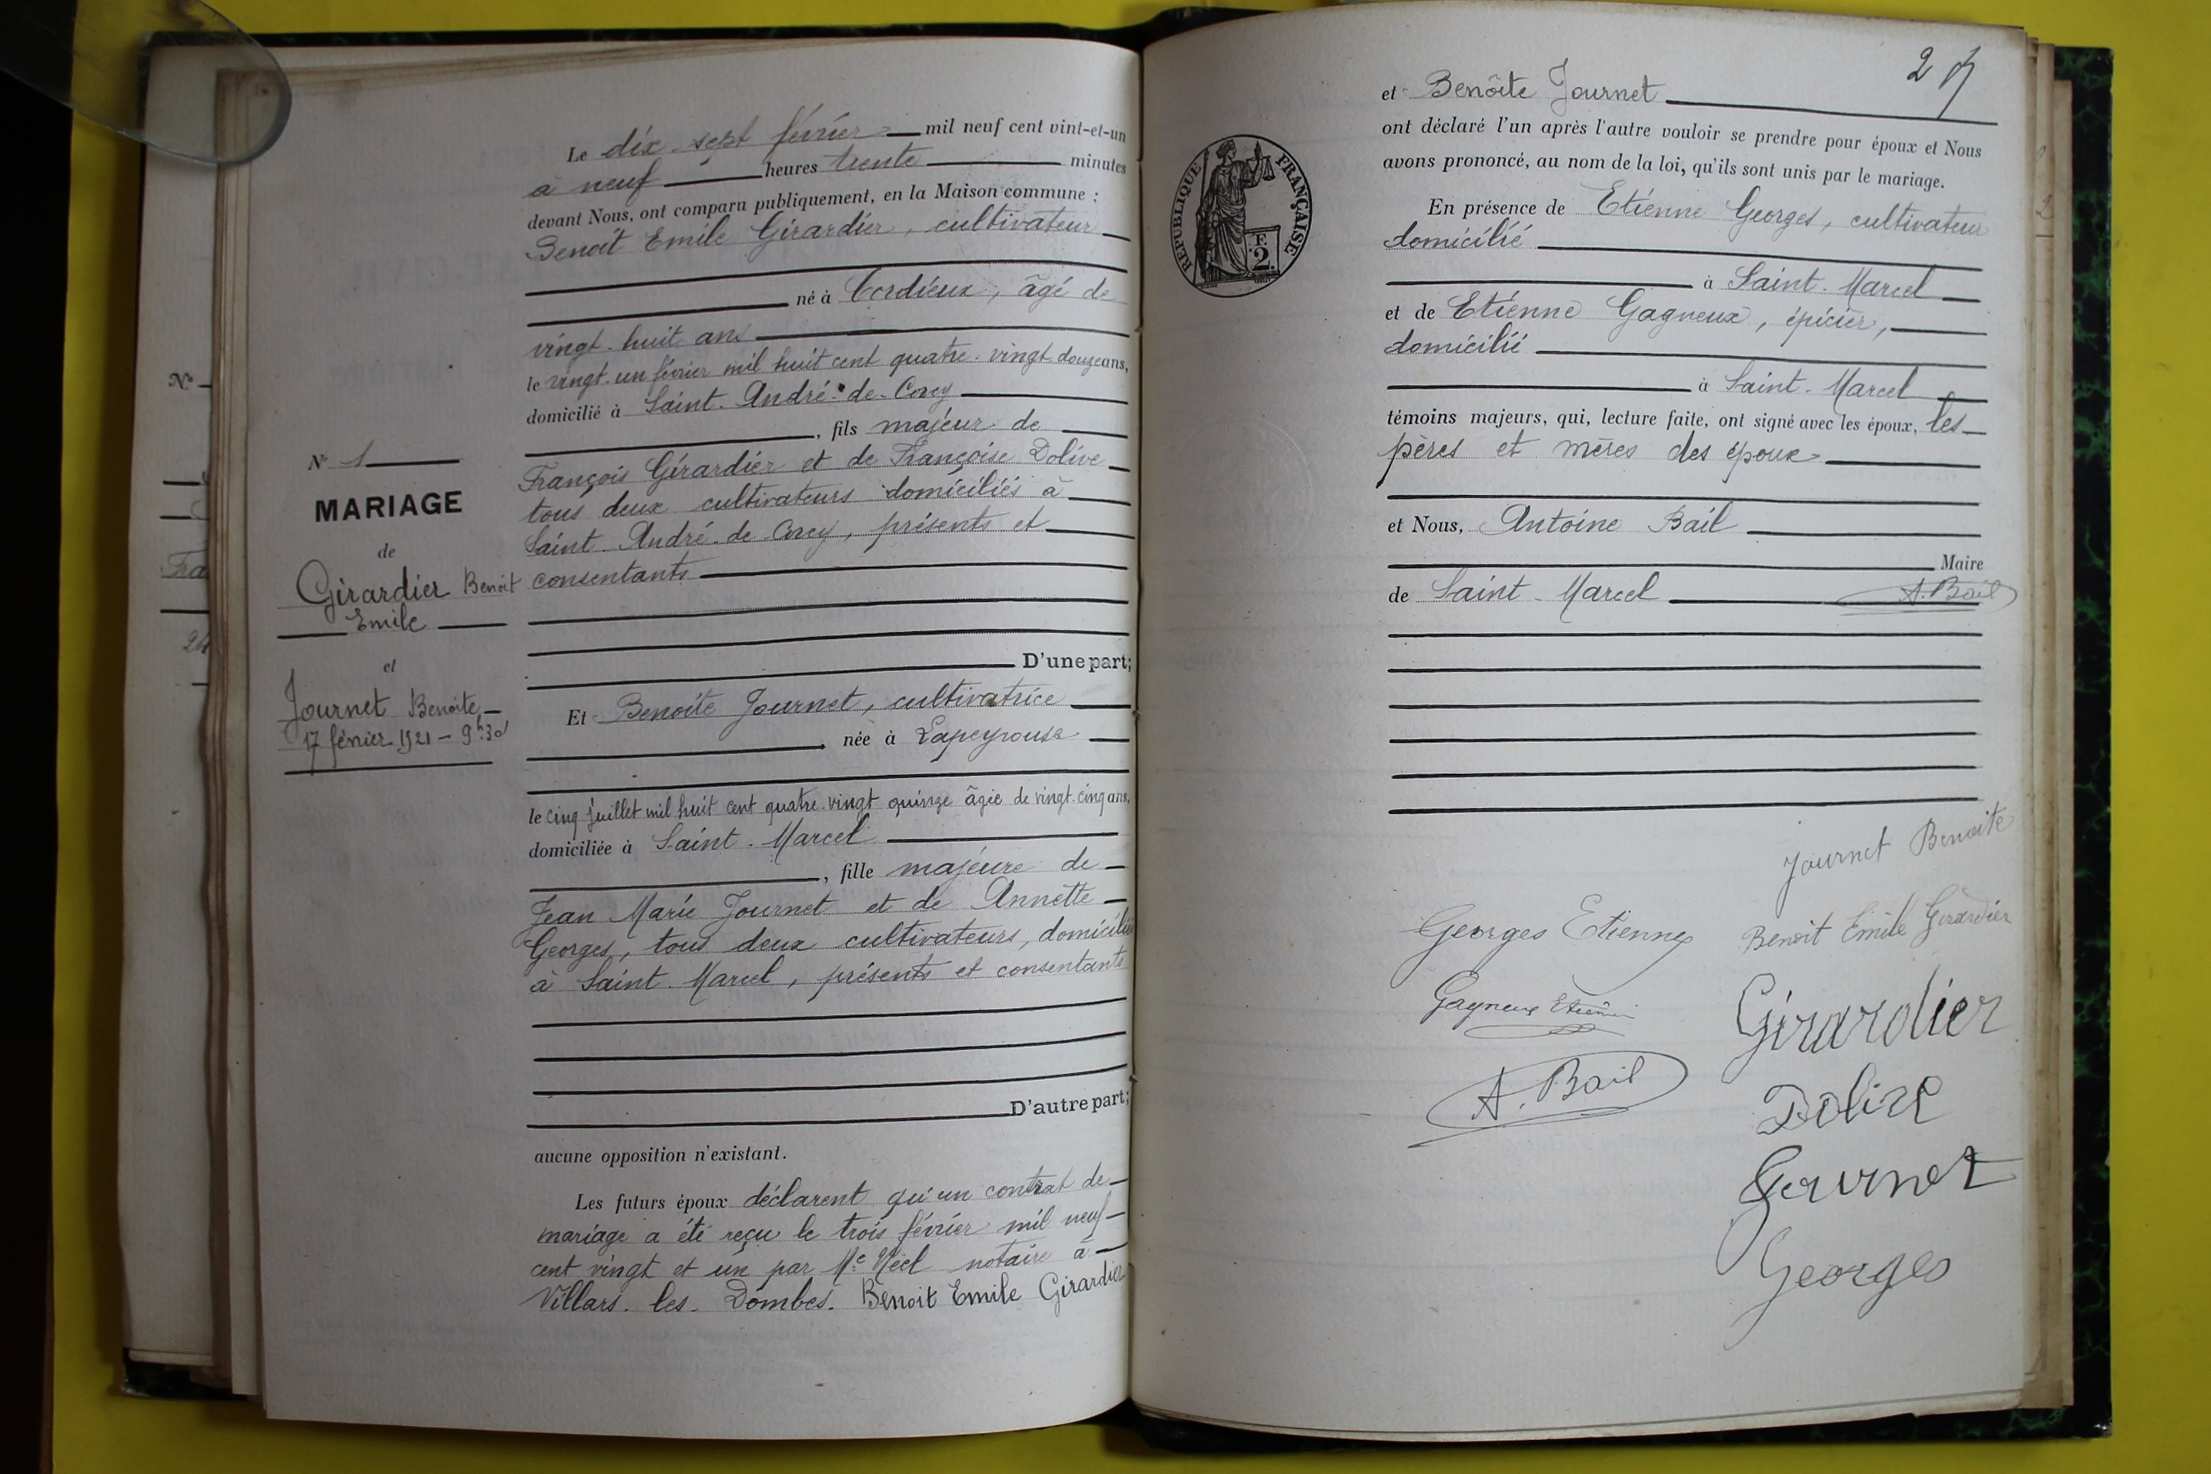 Le dix-sept février mil neuf cent vint-et-un
à neuf heures trente minutes
devant Nous, ont comparu publiquement, en la Maison commune :
Benoît Emile Girardier, cultivateur
né à Cordieux, âgé de
vingt-huit ans
le vingt-un février mil huit cent quatre-vingt douze ans,
domicilié à Saint-André-de-Corcy
, fils majeur de
François Girardier et de Françoise Dolive
tous deux cultivateurs domiciliés à
Saint-André-de-Corcy, présents et
consentants
D'une part;
Et Benoîte Journet, cultivatrice
née à Lapeyrouse
le cinq juillet mil huit cent quatre-vingt quinze âgée de vingt-cinq ans,
domiciliée à Saint-Marcel
, fille majeure de
Jean Marie Journet et de Annette
Georges, tous deux cultivateurs, domiciliés
à Saint-Marcel, présents et consentants
D'autre part;
aucune opposition n'existant.
Les futurs époux déclarent qu'un contrat de
mariage a été reçu le trois février mil neuf
cent vingt et un par Me Néel notaire à
Villars-les-Dombes. Benoit Emile Girardier
N°
Fra
24
N° 1
MARIAGE
de
Girardier Benoit
Emile
et
Journet Benoite
17 février 1921 - 9h30
2
et Benôite Journet
ont déclaré l'un après l'autre vouloir se prendre pour époux et Nous
avons prononcé, au nom de la loi, qu'ils sont unis par le mariage.
En présence de Etienne Georges, cultivateur
domicilié
à Saint-Marcel
et de Etienne Gagneux, épicier,
domicilié
à Saint-Marcel
témoins majeurs, qui, lecture faite, ont signé avec les époux, les
pères et mères des époux
et Nous, Antoine Bail
Maire
de Saint-Marcel A. Bail
RÉPUBLIQUE FRANÇAISE
F.
2
Journet Benoite
Georges Etienne
Benoit Emile Girardier
Gagneux Etienne
Girardier
A. Bail
Dolive
Journet
Georges